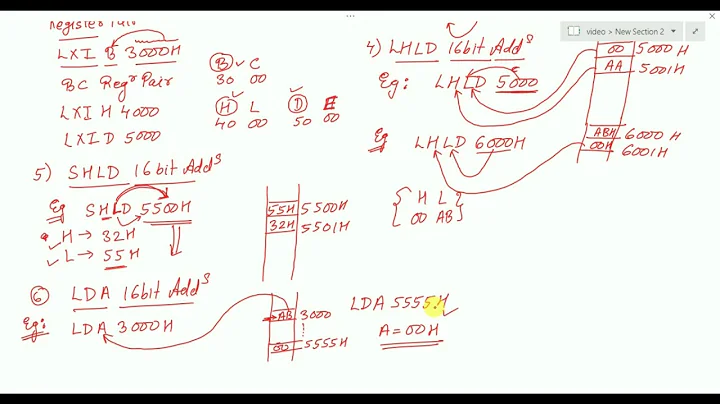 Register Pair
LXI B 3000H
BC Regr Pair
LXI H 4000
LXI D 5000
B C
30 00
H L D E
40 00 50 00
5) SHLD 16bit Adds
Eg SHLD 5500H
H → 32H
L → 55H
55H 5500H
32H 5501H
6 LDA 16bit Adds
Eg: LDA 3000H
AB 3000
00 5555H
LDA 5555H
A = 00H
4) LHLD 16bit Adds
Eg: LHLD 5000
00 5000H
AA 5001H
Eg LHLD 6000H
ABH 6000H
00H 6001H
H L
00 AB
video > New Section 2